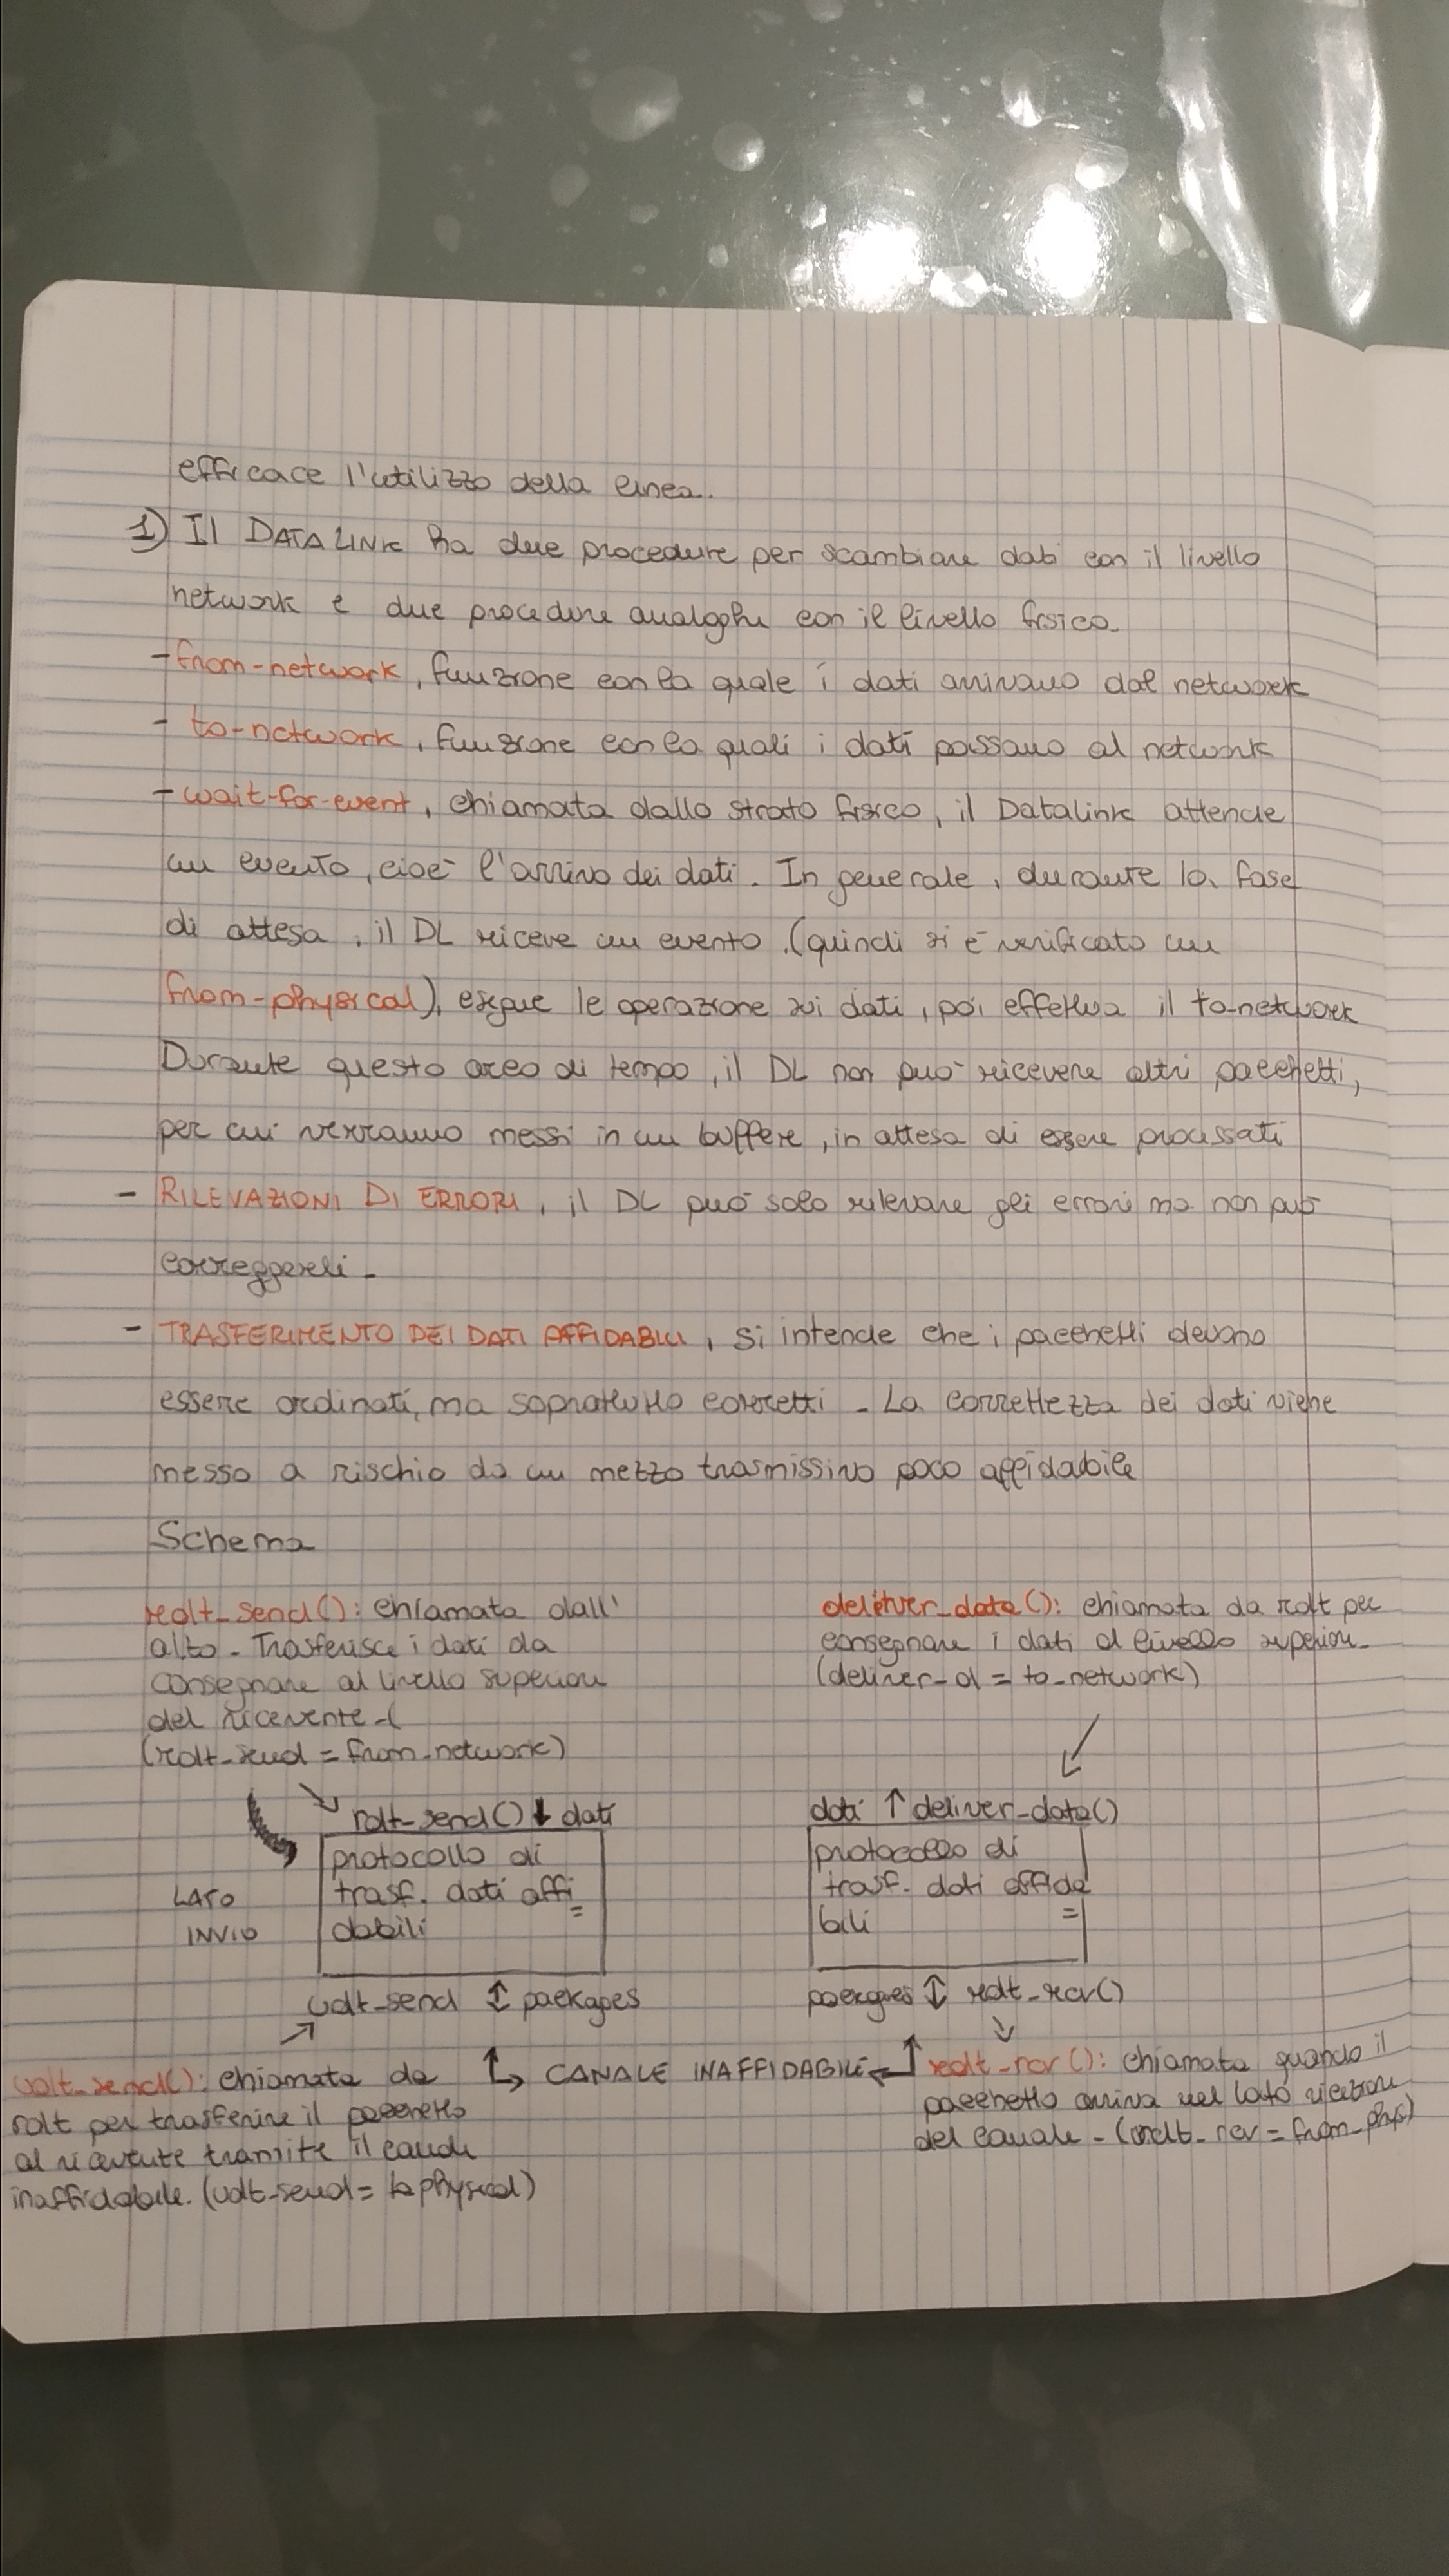 efficace l'utilizzo della linea..
1) Il DATA LINK ha due procedure per scambiare dati con il livello
network e due procedure analoghe con il livello fisico.
- from-network, funzione con la quale i dati arrivano dal network
- to-network, funzione con la quali i dati passano al network
- wait-for-event, chiamata dallo strato fisico, il Datalink attende
un evento, cioè l'arrivo dei dati. In generale, durante la fase
di attesa, il DL riceve un evento (quindi si è verificato un
from-physical), esegue le operazione sui dati, poi effettua il to-network
Durante questo arco di tempo, il DL non può ricevere altri pacchetti,
per cui verranno messi in un buffere, in attesa di essere processati
- RILEVAZIONI DI ERRORI, il DL può solo rilevare gli errori ma non può
correggereli -
- TRASFERIMENTO DEI DATI AFFIDABILI, si intende che i pacchetti devono
essere ordinati, ma soprattutto corretti - La correttezza dei dati viene
messo a rischio da un mezzo trasmissivo poco affidabile
Schema
rdt_send(): chiamata dall'
alto - Trasferisce i dati da
consegnare al livello superiore
del ricevente -(
(rdt_send = from_network)
deliver_data(): chiamata da rdt per
consegnare i dati al livello superiore-
(deliver_d = to_network)
rdt_send() ↓ dati
protocollo di
trasf. dati affi=
dabili
LATO
INVIO
udt_send ↕ packages
dati ↑ deliver_data()
protocollo di
trasf. dati affida=
bili
packages ↕ rdt_rcv()
CANALE INAFFIDABILE
udt_send(): chiamata da
rdt per trasferire il pacchetto
al ricevente tramite il canale
inaffidabile. (udt_send = to physical)
rdt_rcv(): chiamata quando il
pacchetto arriva nel lato ricezione
del canale - (rdt_rcv = from_phys)